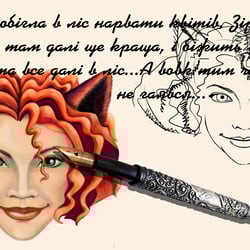 обігла в ліс нарвати квітів. Зі
там далі ще краща, і біжить
та все далі в ліс...А вовк тим ч
не гаявся...